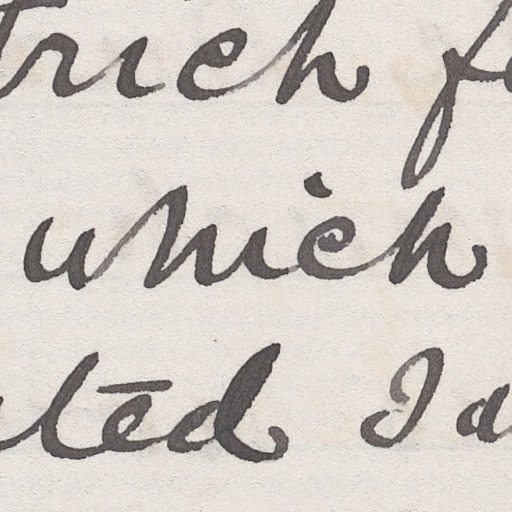 trich fe
which
ated I a